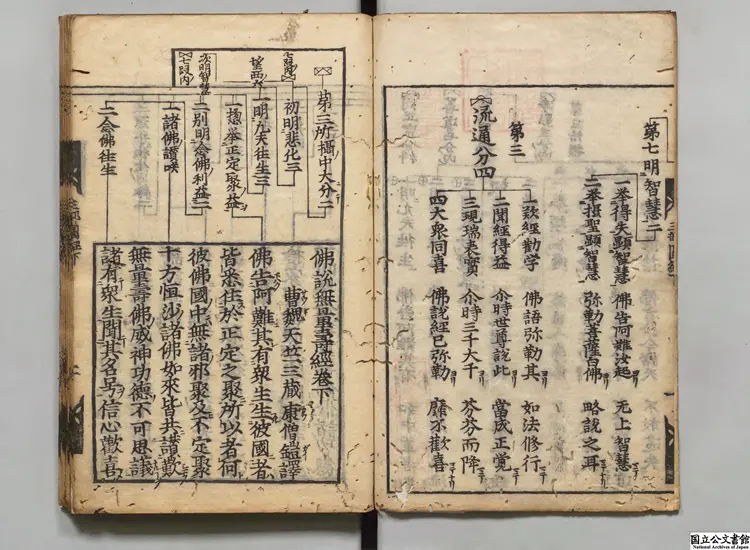 第七明智慧二
一举得失顯智慧 佛告阿難汝起 无上智慧
二举摂聖顯智慧 弥勒菩薩白佛 略説之耳
第三
流通分四
一歎經勸学 佛語弥勒其 如法修行
二聞經得益 尒時世尊説此 當成正覚
三現瑞表實 尒時三千大千 芬芬而降
四大衆同喜 佛説經已弥勒 靡不歡喜
第三所攝中大分二
七段内
初明悲化三
一明凢夫往生三
一揔举正定聚益
次明智慧
二別明念佛利益二
七段内
一諸佛讃咲
二念佛往生
佛説無量壽經巻下
曹魏天竺三蔵康僧鎧譯
佛告阿難其有衆生生彼國者
皆悉住於正定之聚所以者何
彼佛國中無諸邪聚及不定聚
十方恒沙諸佛如來皆共讃歎
無量壽佛威神功德不可思議
諸有衆生聞其名号信心歡喜
国立公文書館
National Archives of Japan